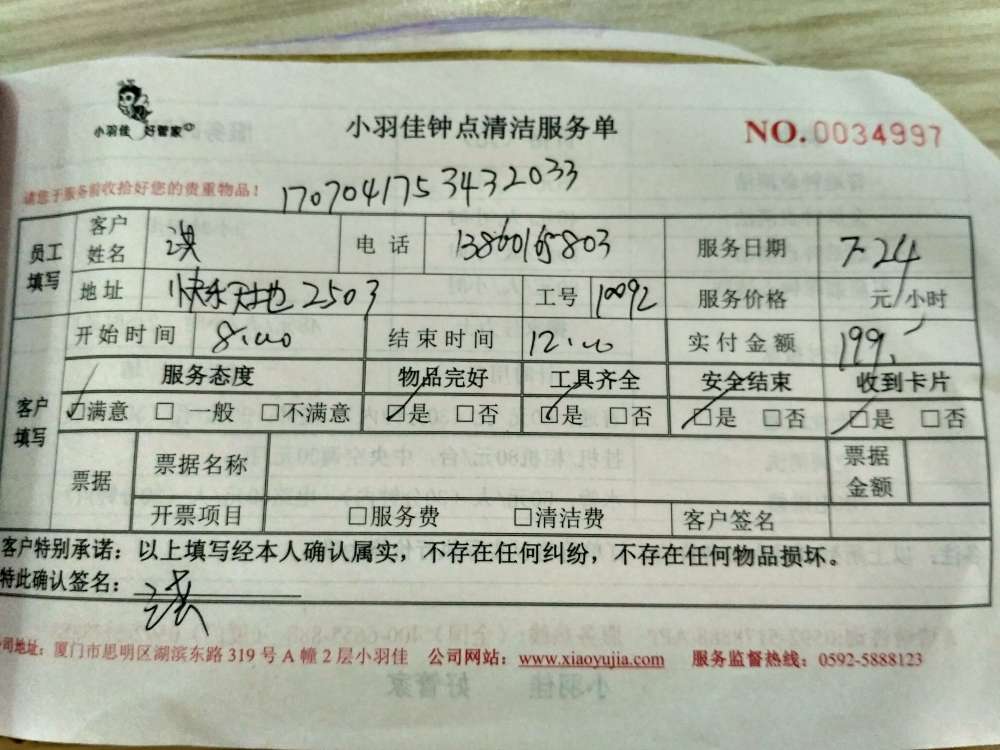 小羽佳 好管家
小羽佳钟点清洁服务单
NO.0034997
请您于服务前收拾好您的贵重物品！
1707041753432033
员工填写 客户姓名 洪 电话 13860165803 服务日期 7-24
地址 快乐天地 2503 工号 10092 服务价格 元/小时
开始时间 8:00 结束时间 12:00 实付金额 199
客户填写 服务态度 物品完好 工具齐全 安全结束 收到卡片
☑满意 □一般 □不满意 ☑是 □否 ☑是 □否 ☑是 □否 ☑是 □否
票据 票据名称 票据金额
开票项目 □服务费 □清洁费 客户签名
客户特别承诺：以上填写经本人确认属实，不存在任何纠纷，不存在任何物品损坏。
特此确认签名：洪
公司地址：厦门市思明区湖滨东路 319 号 A 幢 2 层小羽佳 公司网站：www.xiaoyujia.com 服务监督热线：0592-5888123